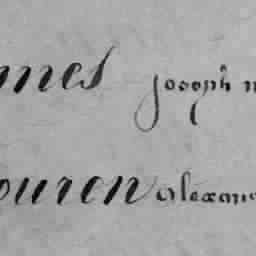 nnes joseph
ouren alexan